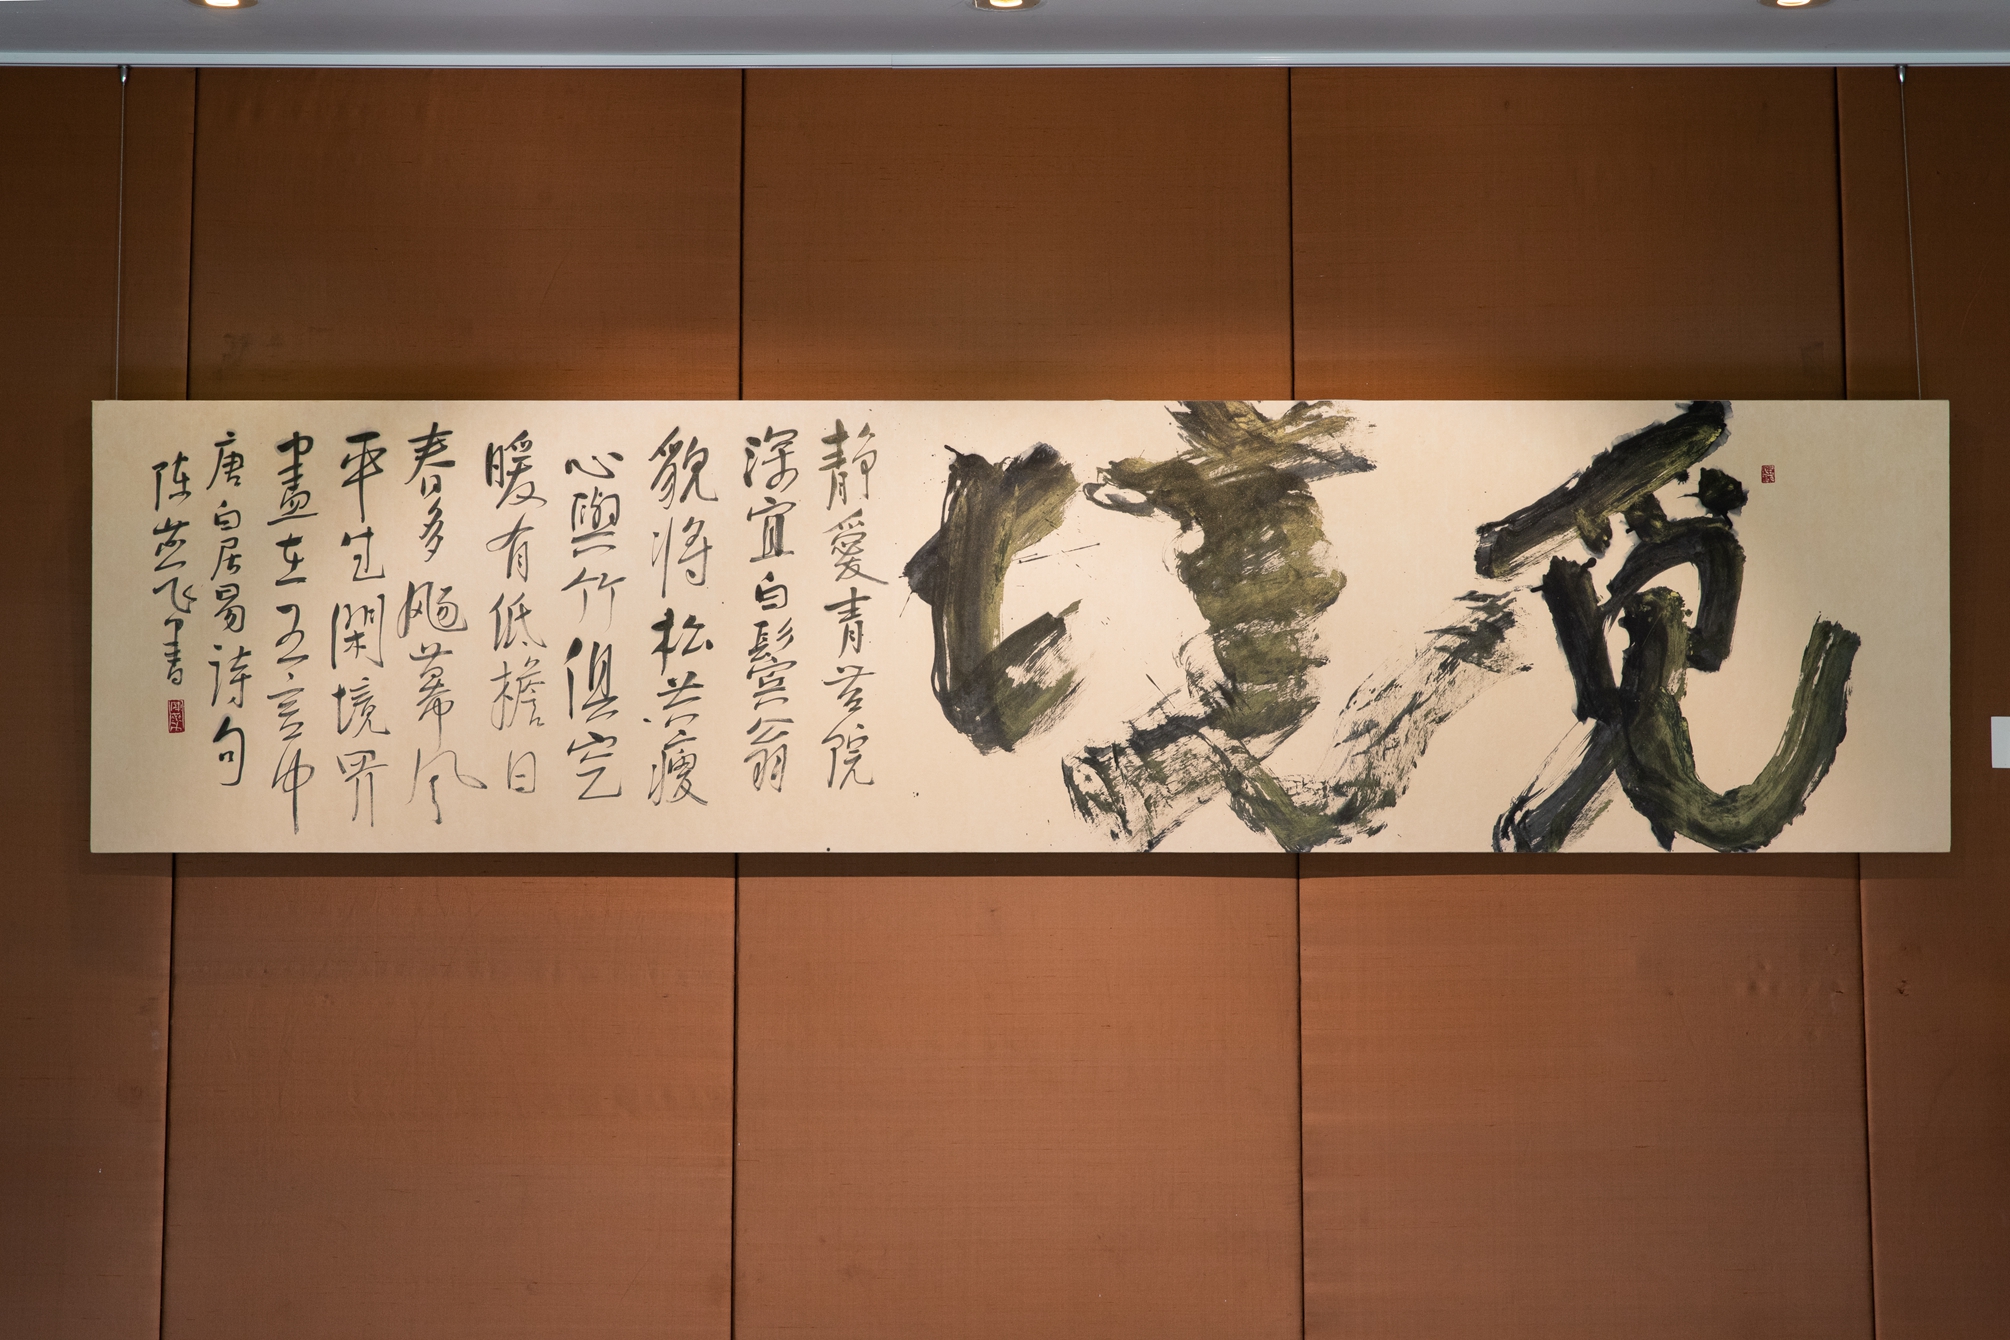 觉境
静愛青苔院
深宜白鬢翁
貌将松共瘦
心與竹俱空
暖有低檐日
春多飏幕风
平生閑境界
盡在五言中
唐白居易诗句
陈飞書